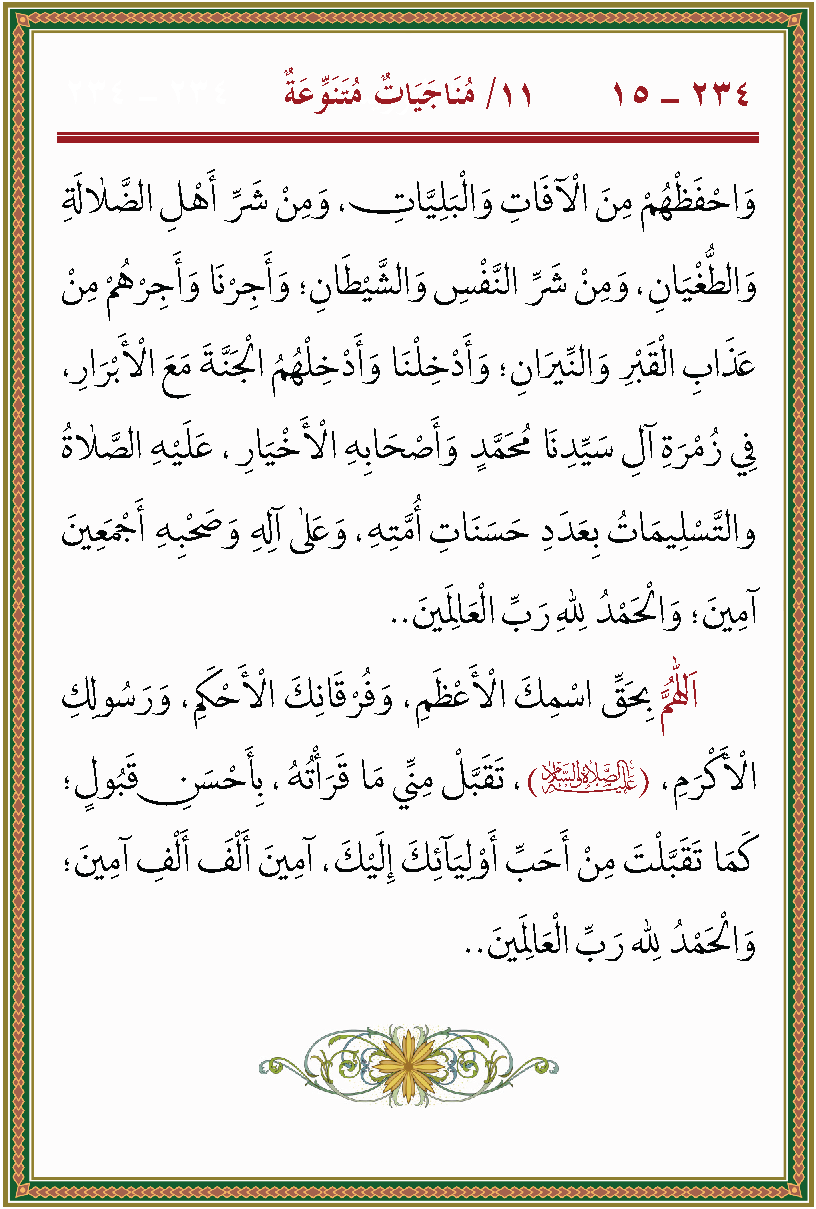 ٢٣٤ – ١٥ ١١/ مُنَاجَيَاتٌ مُتَنَوِّعَةٌ ٢٣٤ – ٢٣٤
وَاحْفَظْهُمْ مِنَ الْآفَاتِ وَالْبَلِيَّاتِ، وَمِنْ شَرِّ أَهْلِ الضَّلَالَةِ
وَالطُّغْيَانِ، وَمِنْ شَرِّ النَّفْسِ وَالشَّيْطَانِ؛ وَأَجِرْنَا وَأَجِرْهُمْ مِنْ
عَذَابِ الْقَبْرِ وَالنِّيرَانِ؛ وَأَدْخِلْنَا وَأَدْخِلْهُمُ الْجَنَّةَ مَعَ الْأَبْرَارِ،
فِي زُمْرَةِ آلِ سَيِّدِنَا مُحَمَّدٍ وَأَصْحَابِهِ الْأَخْيَارِ، عَلَيْهِ الصَّلَاةُ
والتَّسْلِيمَاتُ بِعَدَدِ حَسَنَاتِ أُمَّتِهِ، وَعَلَى آلِهِ وَصَحْبِهِ أَجْمَعِينَ
آمِينَ؛ وَالْحَمْدُ لِلّٰهِ رَبِّ الْعَالَمِينَ..
اَللّٰهُمَّ بِحَقِّ اسْمِكَ الْأَعْظَمِ، وَفُرْقَانِكَ الْأَحْكَمِ، وَرَسُولِكِ
الْأَكْرَمِ، (عَلَيْهِ الصَّلَاةُ وَالسَّلَامُ)، تَقَبَّلْ مِنِّي مَا قَرَأْتُهُ، بِأَحْسَنِ قَبُولٍ؛
كَمَا تَقَبَّلْتَ مِنْ أَحَبِّ أَوْلِيَآئِكَ إِلَيْكَ، آمِينَ أَلْفَ أَلْفِ آمِينَ؛
وَالْحَمْدُ لِلّٰهِ رَبِّ الْعَالَمِينَ..